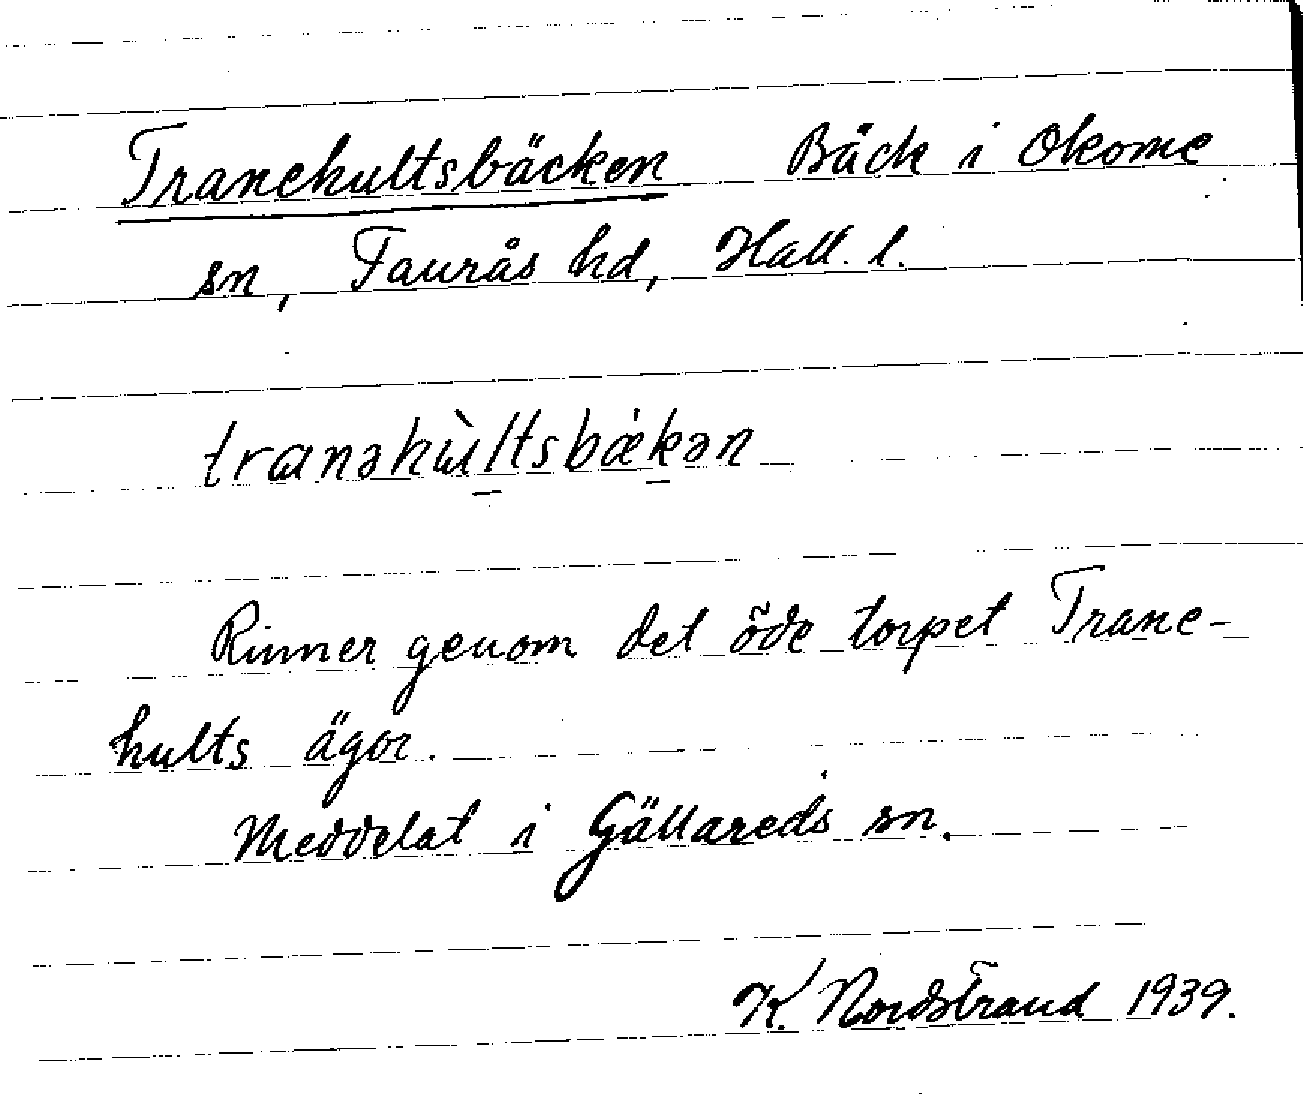 Tranehultsbäcken Bäck i Okome
sn, Faurås hd, Hall. l.
tranəhùltsbækən
Rinner genom det öde torpet Trane-
hults ägor.
Meddelat i Gällareds sn.
K. Nordstrand 1939.